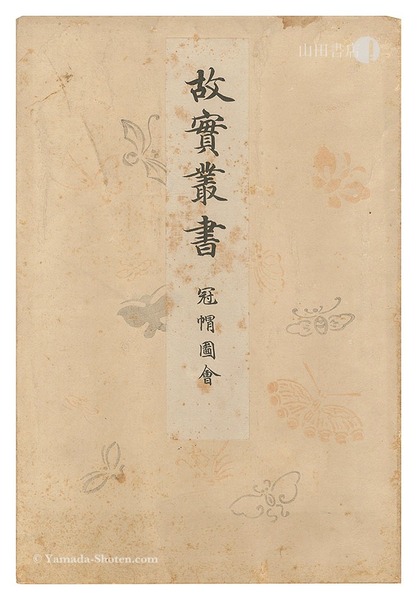 山田書店
故實叢書
冠帽圖會
© Yamada-Shoten.com